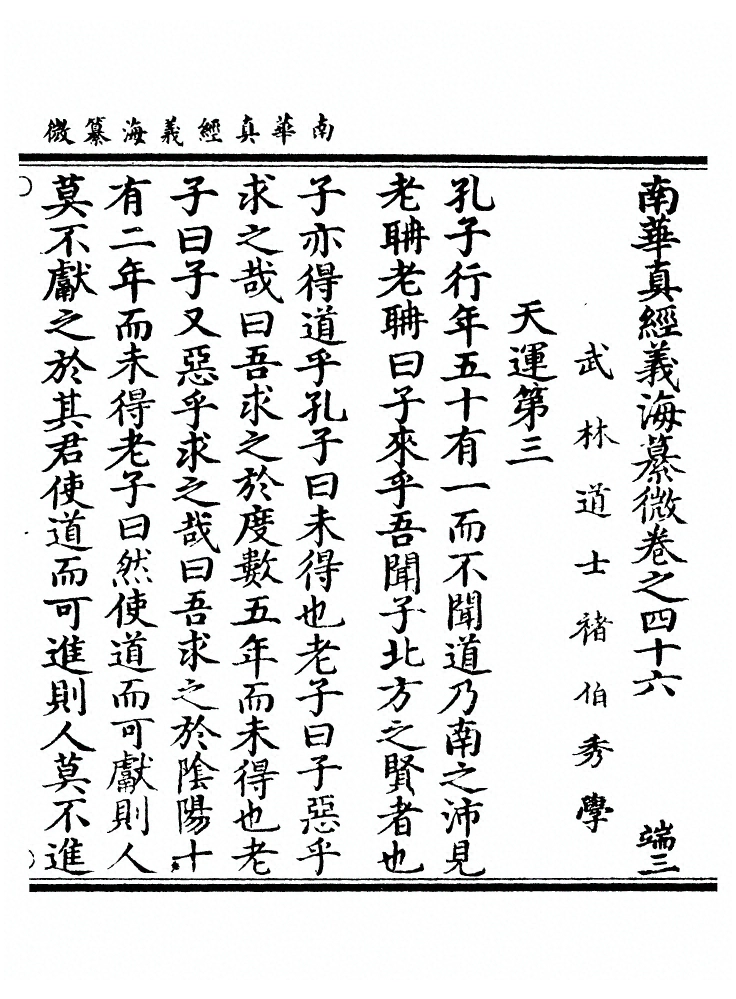 南華真經義海纂微
南華真經義海纂微卷之四十六 端三
武林道士褚伯秀學
天運第三
孔子行年五十有一而不聞道乃南之沛見
老聃老聃曰子來乎吾聞子北方之賢者也
子亦得道乎孔子曰未得也老子曰子惡乎
求之哉曰吾求之於度數五年而未得也老
子曰子又惡乎求之哉曰吾求之於陰陽十
有二年而未得老子曰然使道而可獻則人
莫不獻之於其君使道而可進則人莫不進